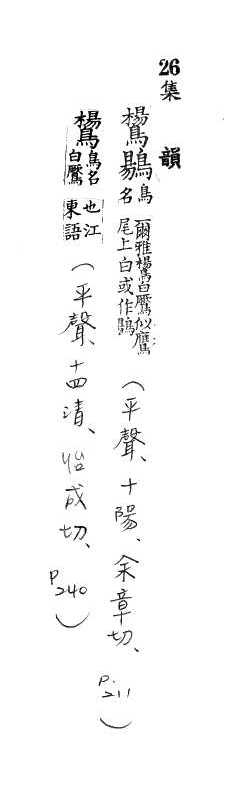 26 集韻
鸉 鳥名爾雅鸉白鷢似鷹尾上白或作 (平聲、十陽、余章切、P.211)
鸉 鳥名白鷢也江東語 (平聲、十四清、怡成切、P240)